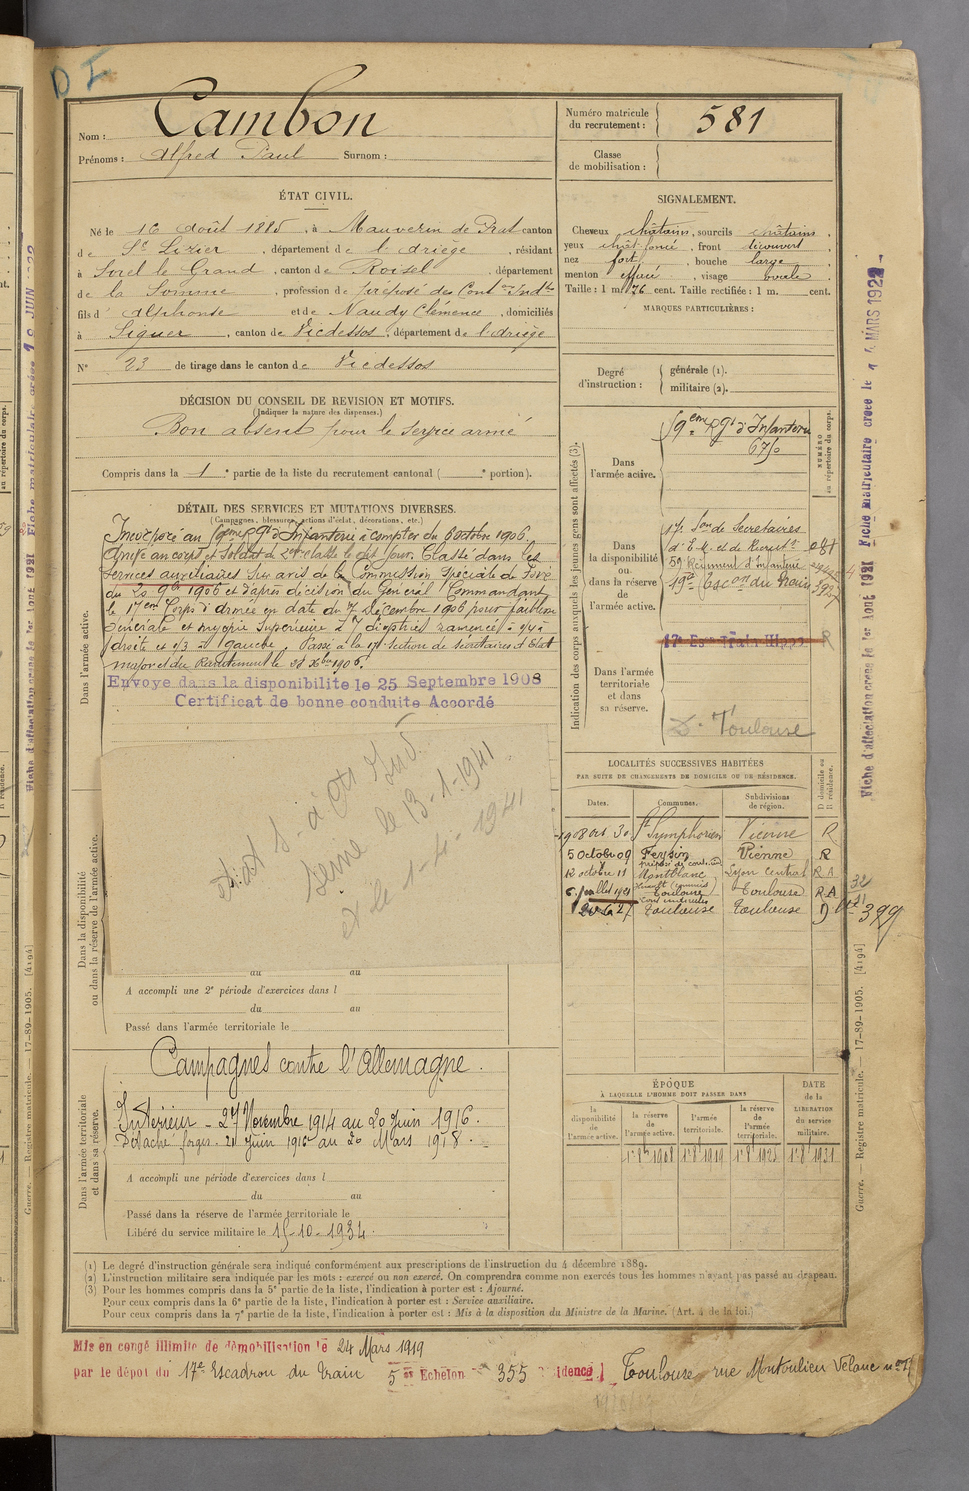 D I
Nom : Cambon
Prénoms : Alfred Paul Surnom :
Numéro matricule
du recrutement : 581
Classe
de mobilisation :
ÉTAT CIVIL.
Né le 16 août 1885, à Mauvezin de Prat canton
de St Lizier, département de l'Ariège, résidant
à Sorel le Grand, canton de Roisel, département
de la Somme, profession de préposé des Cont. Ind.
fils d'Alphonse et de Naudy Clémence, domiciliés
à Siguer, canton de Vicdessos, département de l'Ariège
N° 23 de tirage dans le canton de Vicdessos
SIGNALEMENT.
Cheveux châtains, sourcils châtains,
yeux chât. foncé, front découvert,
nez fort, bouche large,
menton effilé, visage ovale,
Taille : 1 m. 76 cent. Taille rectifiée : 1 m. cent.
MARQUES PARTICULIÈRES :
Degré
d'instruction :
générale (1).
militaire (2).
DÉCISION DU CONSEIL DE REVISION ET MOTIFS.
(Indiquer la nature des dispenses.)
Bon absent pour le service armé
Compris dans la 1e partie de la liste du recrutement cantonal ( e portion).
DÉTAIL DES SERVICES ET MUTATIONS DIVERSES.
(Campagnes, blessures, actions d'éclat, décorations, etc.)
Dans l'armée active.
Incorporé au 59eme Rgt d'Infanterie à compter du 6 octobre 1906.
Arrivé au corps et Soldat de 2e classe le dit jour. Classé dans les
services auxiliaires sur avis de la Commission Spéciale de
du 20 9bre 1906 et d'après décision du Général Commandant
le 17eme Corps d'armée en date du 7 Décembre 1906 pour faiblesse
Générale et myopie supérieure à 7 dioptries ramenée à 1/4 à
droite et 1/3 à gauche. Passé à la 17e Section de secrétaires d'Etat
major et du Recrutement le
Envoyé dans la disponibilité le 25 Septembre 1908
Certificat de bonne conduite Accordé
Dans la disponibilité
ou dans la réserve de l'armée active.
le 13-1-1941
et le 1-4-1941
au au
A accompli une 2e période d'exercices dans l
du au
Passé dans l'armée territoriale le
Dans l'armée territoriale
et dans sa réserve.
Campagnes contre l'Allemagne.
Intérieur - 27 Novembre 1914 au 20 Juin 1916.
Détaché forges - 21 Juin 1916 au 20 Mars 1918.
A accompli une période d'exercices dans l
du au
Passé dans la réserve de l'armée territoriale le
Libéré du service militaire le 15-10-1934.
Indication des corps auxquels les jeunes gens sont affectés (3).
NUMÉRO
au répertoire du corps.
Dans
l'armée active.
59eme Rgt d'Infanterie
Dans
la disponibilité
ou
dans la réserve
de
l'armée active.
17e Son de Secretaires
d'E.M. et de Recrutt
59 Régiment d'Infanterie
Dans l'armée
territoriale
et dans
sa réserve.
Toulouse
LOCALITÉS SUCCESSIVES HABITÉES
PAR SUITE DE CHANGEMENTS DE DOMICILE OU DE RÉSIDENCE.
Dates. Communes. Subdivisions
de région. D domicile ou
R résidence.
1908 oct. 30 St Symphorien Vienne R
5 Octobre 09 Feysin Vienne R
12 octobre 11 Montblanc Lyon Central R A
6 Juillet 1921 Toulouse Toulouse R A
Toulouse Toulouse D
399
ÉPOQUE
À LAQUELLE L'HOMME DOIT PASSER DANS
la
disponibilité
de
l'armée active.
la réserve
de
l'armée active.
l'armée
territoriale.
la réserve
de
l'armée
territoriale.
DATE
de la
LIBÉRATION
du service
militaire.
1er 8bre 1908 1er 8bre 1919 1er 8bre 1925 1er 8bre 1931
(1) Le degré d'instruction générale sera indiqué conformément aux prescriptions de l'instruction du 4 décembre 1889.
(2) L'instruction militaire sera indiquée par les mots : exercé ou non exercé. On comprendra comme non exercés tous les hommes n'ayant pas passé au drapeau.
(3) Pour les hommes compris dans la 5e partie de la liste, l'indication à porter est : Ajourné.
Pour ceux compris dans la 6e partie de la liste, l'indication à porter est : Service auxiliaire.
Pour ceux compris dans la 7e partie de la liste, l'indication à porter est : Mis à la disposition du Ministre de la Marine. (Art. 4 de la loi.)
Mis en congé illimité de démobilisation le 24 Mars 1919
par le dépôt du 17e Escadron du Train 5es Echelon 355 Toulouse rue Montoulieu Velane
Fiche d'affectation créée le 1er AOUT 1921 Fiche matriculaire créée le 14 MARS 1922
Guerre. — Registre matricule. — 17-89-1905. [4194]
Fiche d'affectation créée le 1er AOUT 1921 Fiche matriculaire créée
Guerre. — Registre matricule. — 17-89-1905. [4194]
au répertoire du corps.